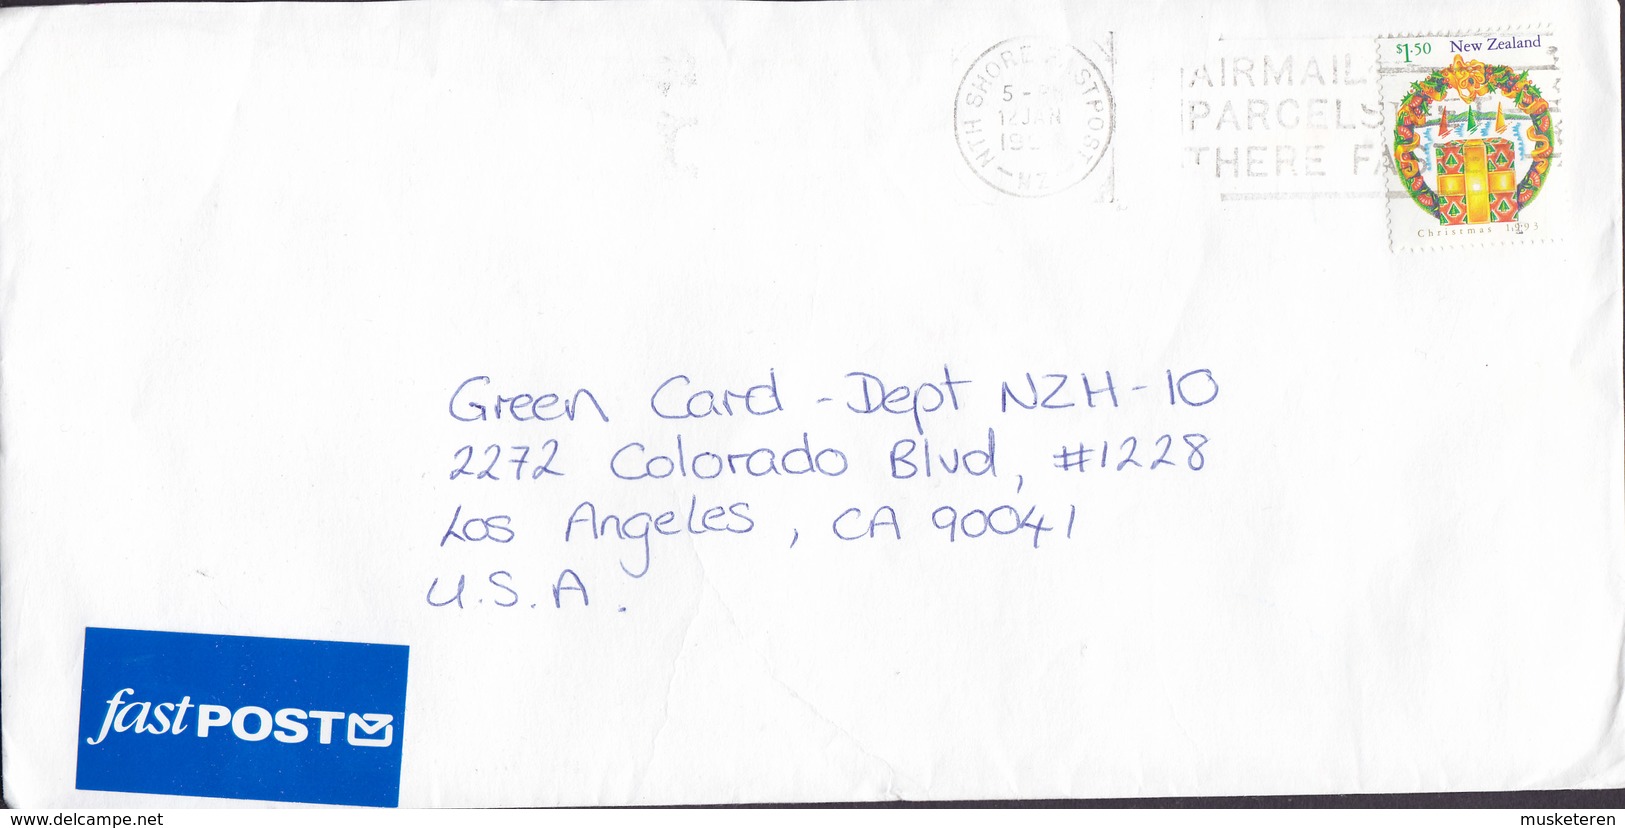 $1.50 New Zealand
Christmas 1993
NTH SHORE FASTPOST
5 -
12 JAN
NZ
AIRMAIL
PARCELS
THERE
Green Card - Dept NZH-10
2272 Colorado Blvd, #1228
Los Angeles, CA 90041
U.S.A.
fast POST
www.delcampe.net
musketeren